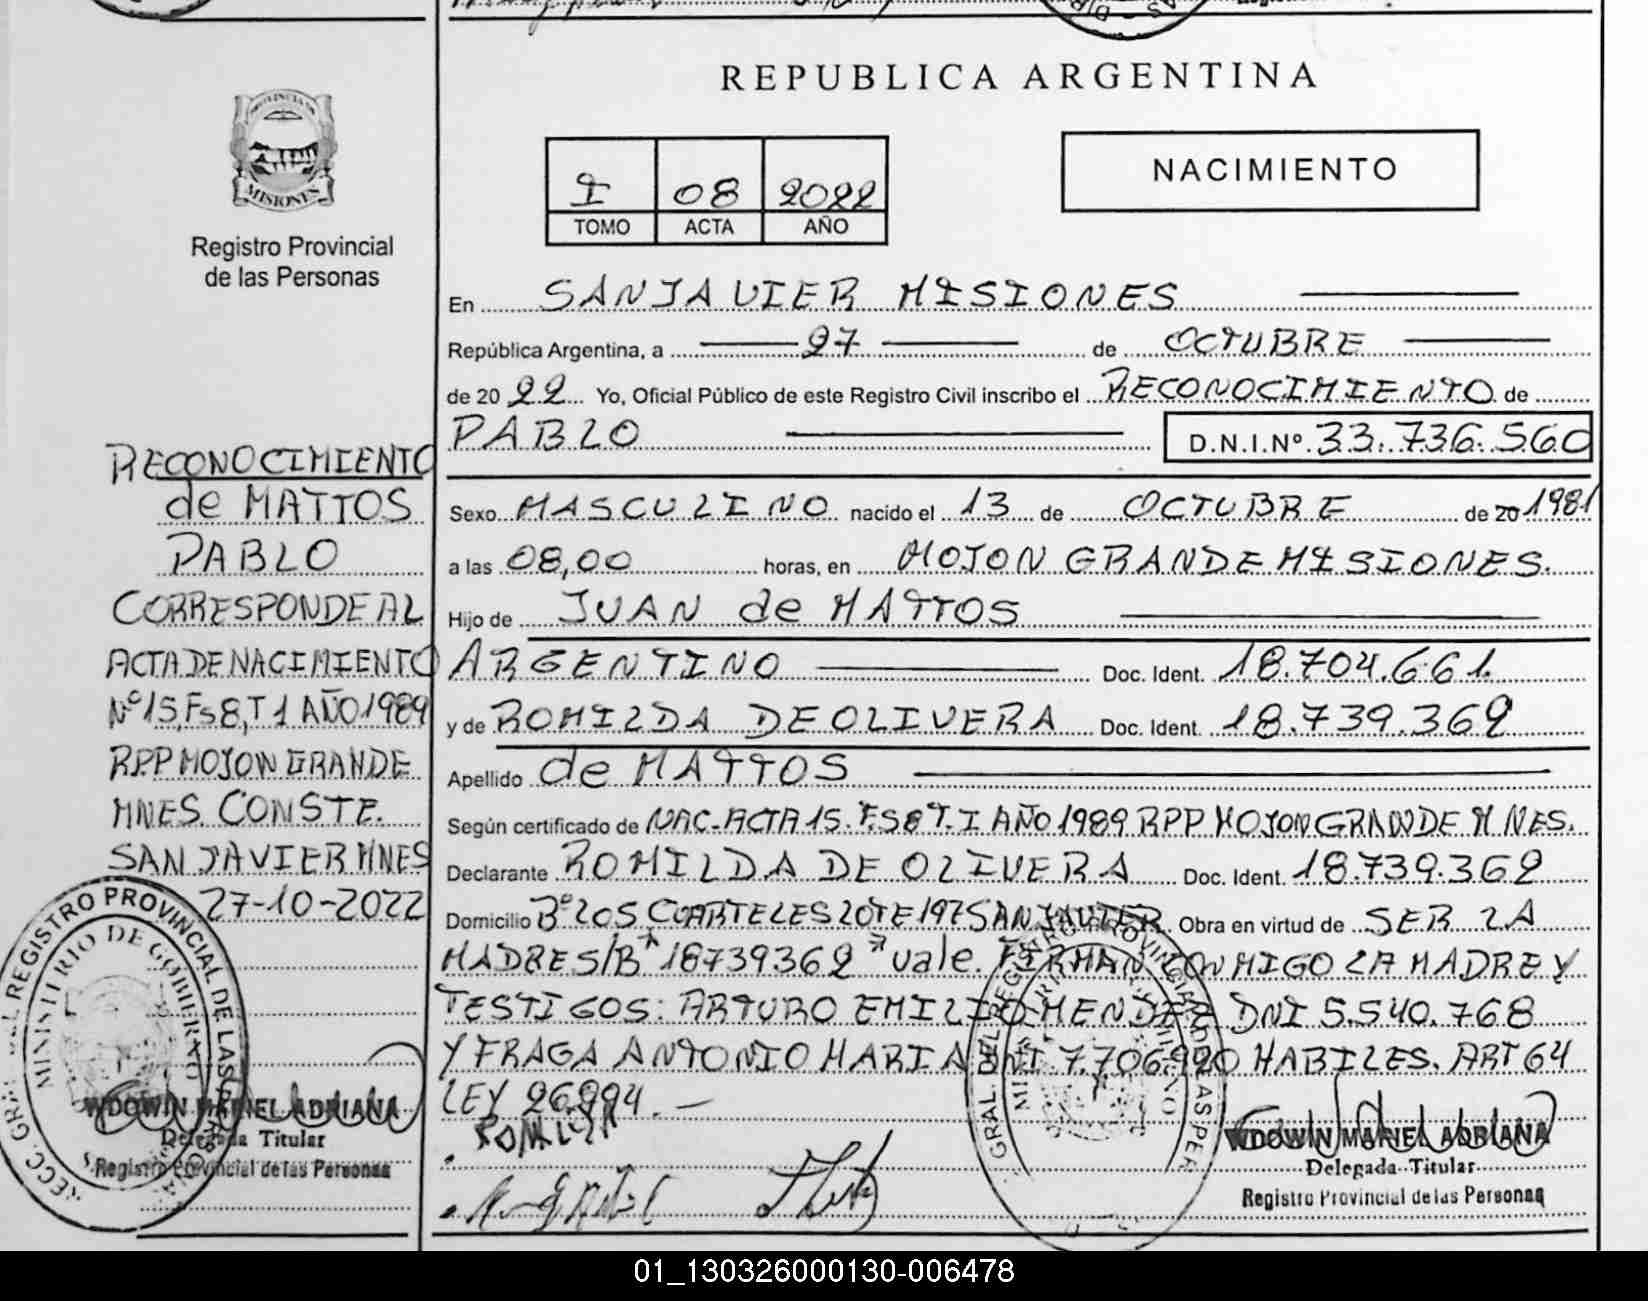 REPUBLICA ARGENTINA
PROVINCIA DE
MISIONES
Registro Provincial
de las Personas
I 08 2022
TOMO ACTA AÑO
NACIMIENTO
En SAN JAVIER MISIONES
República Argentina, a 27 de OCTUBRE
de 20 22 Yo, Oficial Público de este Registro Civil inscribo el RECONOCIMIENTO de
PABLO D.N.I.Nº 33.736.560
Sexo MASCULINO nacido el 13 de OCTUBRE de 20 1981
a las 08,00 horas, en MOJON GRANDE MISIONES.
Hijo de JUAN de MATTOS
ARGENTINO Doc. Ident. 18.704.661.
y de ROMILDA DE OLIVERA Doc. Ident. 18.739.362
Apellido de MATTOS
Según certificado de NAC. ACTA 15. Fs 8 T. I AÑO 1989 RPP MOJON GRANDE MNES.
Declarante ROMILDA DE OLIVERA Doc. Ident. 18.739.362
Domicilio Bº LOS CUARTELES LOTE 197 SAN JAVIER Obra en virtud de SER LA
MADRE S/B "18739362" vale. FIRMAN CONMIGO LA MADRE Y
TESTIGOS: ARTURO EMILIO MENDEZ DNI 5.540.768
Y FRAGA ANTONIO MARIA DNI 7.706.920 HABILES. ART 64
LEY 26.994. —
RECONOCIMIENTO
de MATTOS
PABLO
CORRESPONDE AL
ACTA DE NACIMIENTO
Nº 15, Fs 8, T 1 AÑO 1989
RPP MOJON GRANDE
MNES. CONSTE.
SAN JAVIER MNES
27-10-2022
REGISTRO PROVINCIAL DE LAS
MINISTERIO DE GOBIERNO
WDOWIN MARIEL ADRIANA
Delegada Titular
Registro Provincial de las Personas
WDOWIN MARIEL ADRIANA
Delegada Titular
Registro Provincial de las Personas
01_130326000130-006478